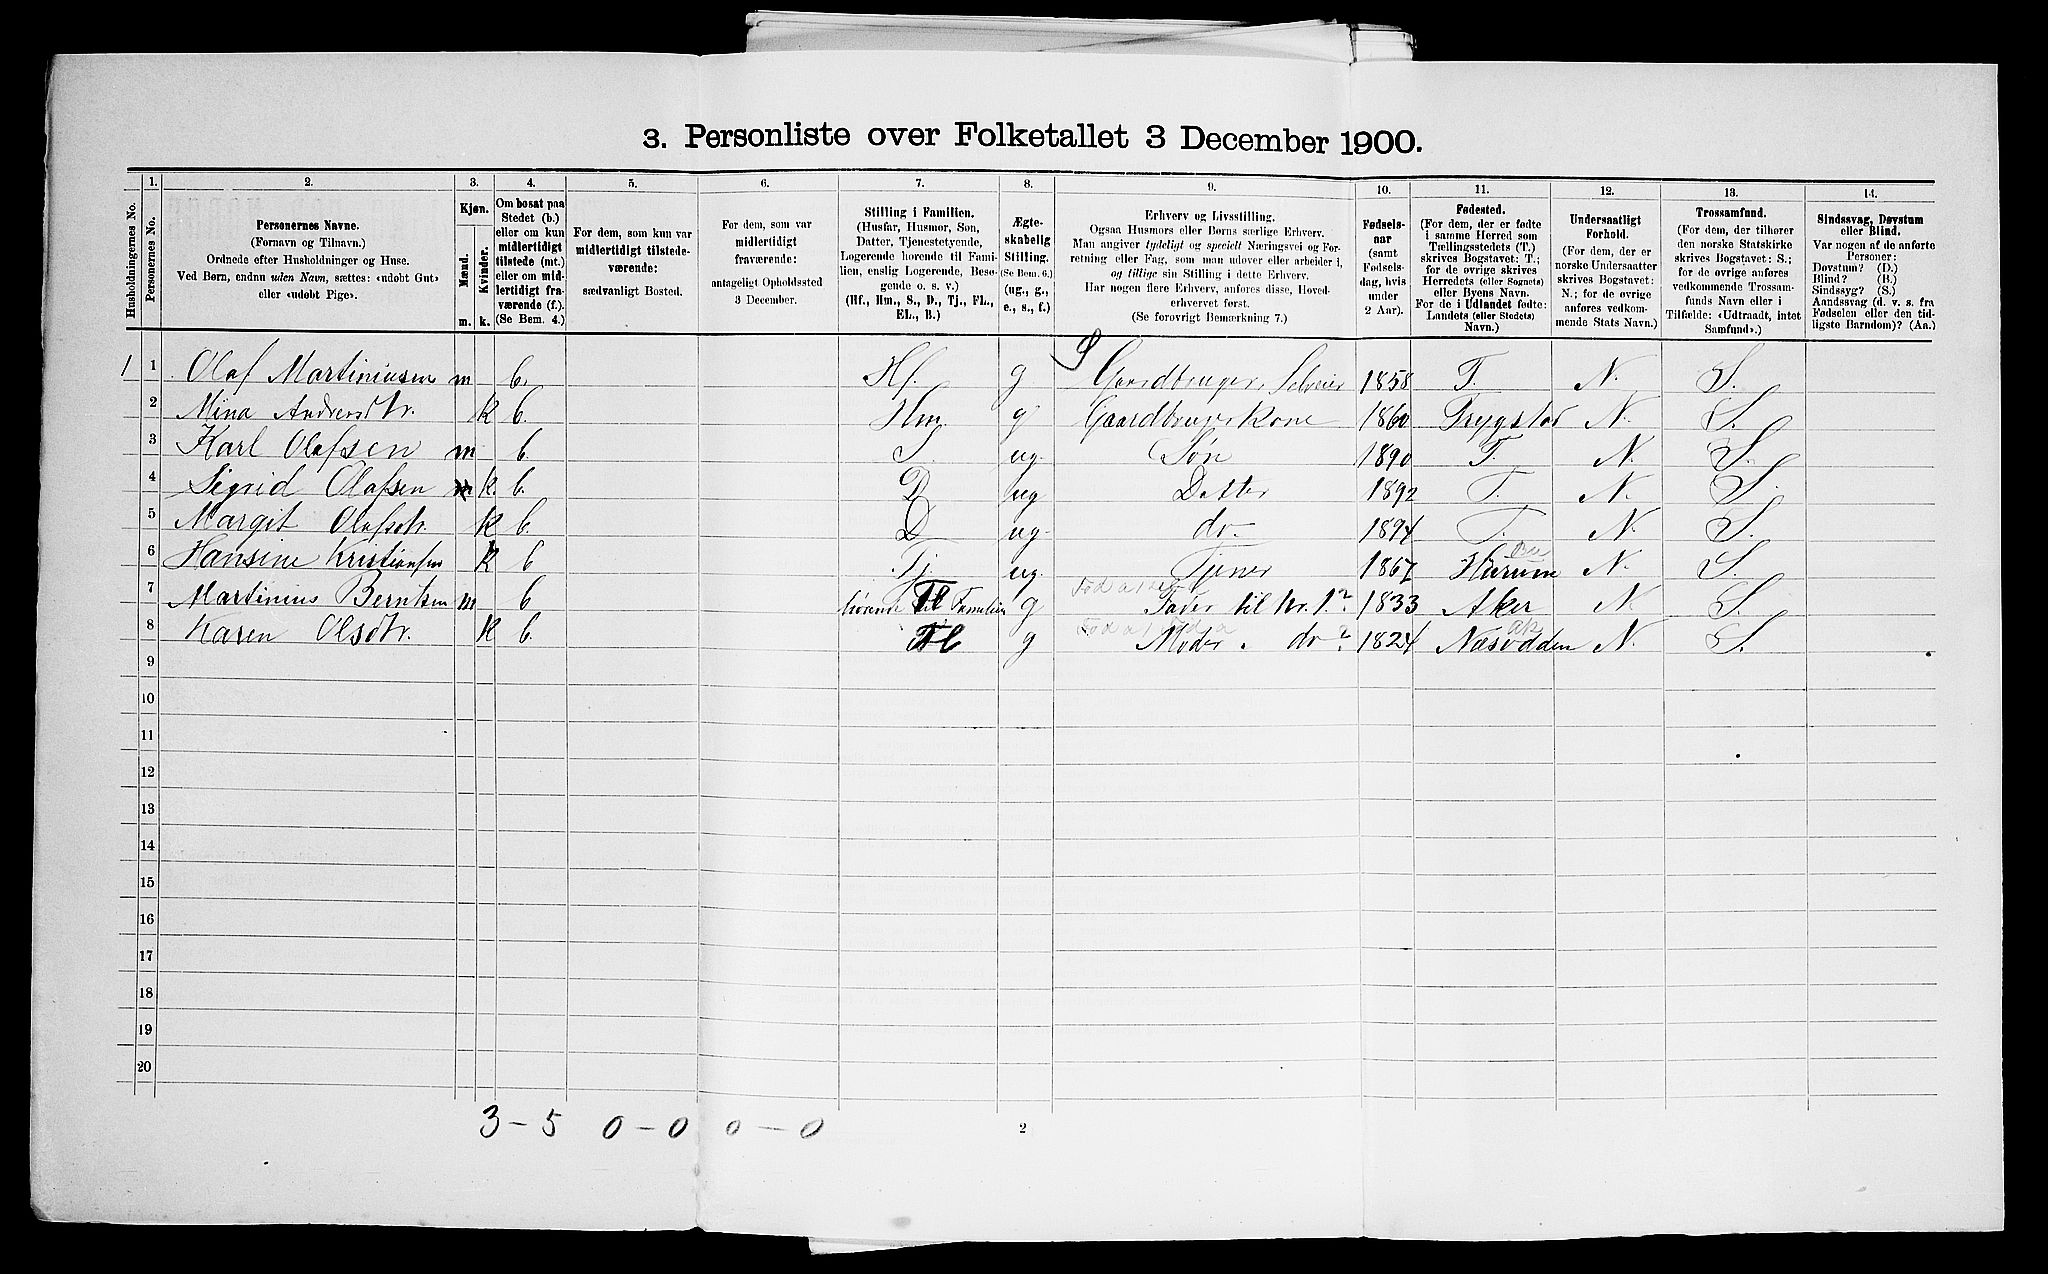 3. Personliste over Folketallet 3 December 1900.
1. 2. 3. 4. 5. 6. 7. 8. 9. 10. 11. 12. 13. 14.
Husholdningernes No.
Personernes No.
Personernes Navne.
(Fornavn og Tilnavn.)
Ordnede efter Husholdninger og Huse.
Ved Børn, endnu uden Navn, sættes: «udøbt Gut»
eller «udøbt Pige».
Kjøn.
Mænd.
Kvinder.
m. k.
Om bosat paa
Stedet (b.)
eller om kun
midlertidigt
tilstede (mt.)
eller om mid-
lertidigt fra-
værende (f.).
(Se Bem. 4.)
For dem, som kun var
midlertidigt tilstede-
værende:
sædvanligt Bosted.
For dem, som var
midlertidigt
fraværende:
antageligt Opholdssted
3 December.
Stilling i Familien.
(Husfar, Husmor, Søn,
Datter, Tjenestetyende,
Logerende hørende til Fami-
lien, enslig Logerende, Besø-
gende o. s. v.)
(Hf., Hm., S., D., Tj., FL.,
EL., B.)
Ægte-
skabelig
Stilling.
(Se Bem. 6.)
(ug., g.,
e., s., f.)
Erhverv og Livsstilling.
Ogsaa Husmors eller Børns særlige Erhverv.
Man angiver tydeligt og specielt Næringsvei og For-
retning eller Fag, som man udøver eller arbeider i,
og tillige sin Stilling i dette Erhverv.
Har nogen flere Erhverv, anføres disse, Hoved-
erhvervet først.
(Se forøvrigt Bemærkning 7.)
Fødsels-
aar
(samt
Fødsels-
dag, hvis
under
2 Aar).
Fødested.
(For dem, der er fødte
i samme Herred som
Tællingsstedets (T.)
skrives Bogstavet: T.;
for de øvrige skrives
Herredets (eller Sognets)
eller Byens Navn.
For de i Udlandet fødte:
Landets (eller Stedets)
Navn.)
Undersaatligt
Forhold.
(For dem, der er
norske Undersaatter
skrives Bogstavet:
N.; for de øvrige
anføres vedkom-
mende Stats Navn.)
Trossamfund.
(For dem, der tilhører
den norske Statskirke
skrives Bogstavet: S.;
for de øvrige anføres
vedkommende Trossam-
funds Navn eller i
Tilfælde: «Udtraadt, intet
Samfund».)
Sindssvag, Døvstum
eller Blind.
Var nogen af de anførte
Personer:
Døvstum? (D.)
Blind? (B.)
Sindssyg? (S.)
Aandssvag (d. v. s. fra
Fødselen eller den tid-
ligste Barndom)? (Aa.)
1 1 Olaf Martiniusen m b. Hf. g Gaardbruger, Selveier 1858 T. N. S.
2 Mina Andersdtr. k b. Hm. g Gaardbrugerkone 1860 Trygstad N. S.
3 Karl Olafsen m b. S. ug. Søn 1890 T. N. S.
4 Sigrid Olafsen k. b. D ug Datter 1892 T. N. S.
5 Margit Olafsdtr. k b. D ug. do. 1894 T. N. S.
6 Hansine Kristiansen k b Tj. ug. Tjener 1867 Hurum N. S.
7 Martinius Berntsen m b hørende til Familien Fl g Fader til Nr. 1. 1833 Aker N. S.
8 Karen Olsdtr. k b. Fl g Moder " do 1824 Næsodden N. S.
9
10
11
12
13
14
15
16
17
18
19
20
3 - 5 0 - 0 0 - 0
2